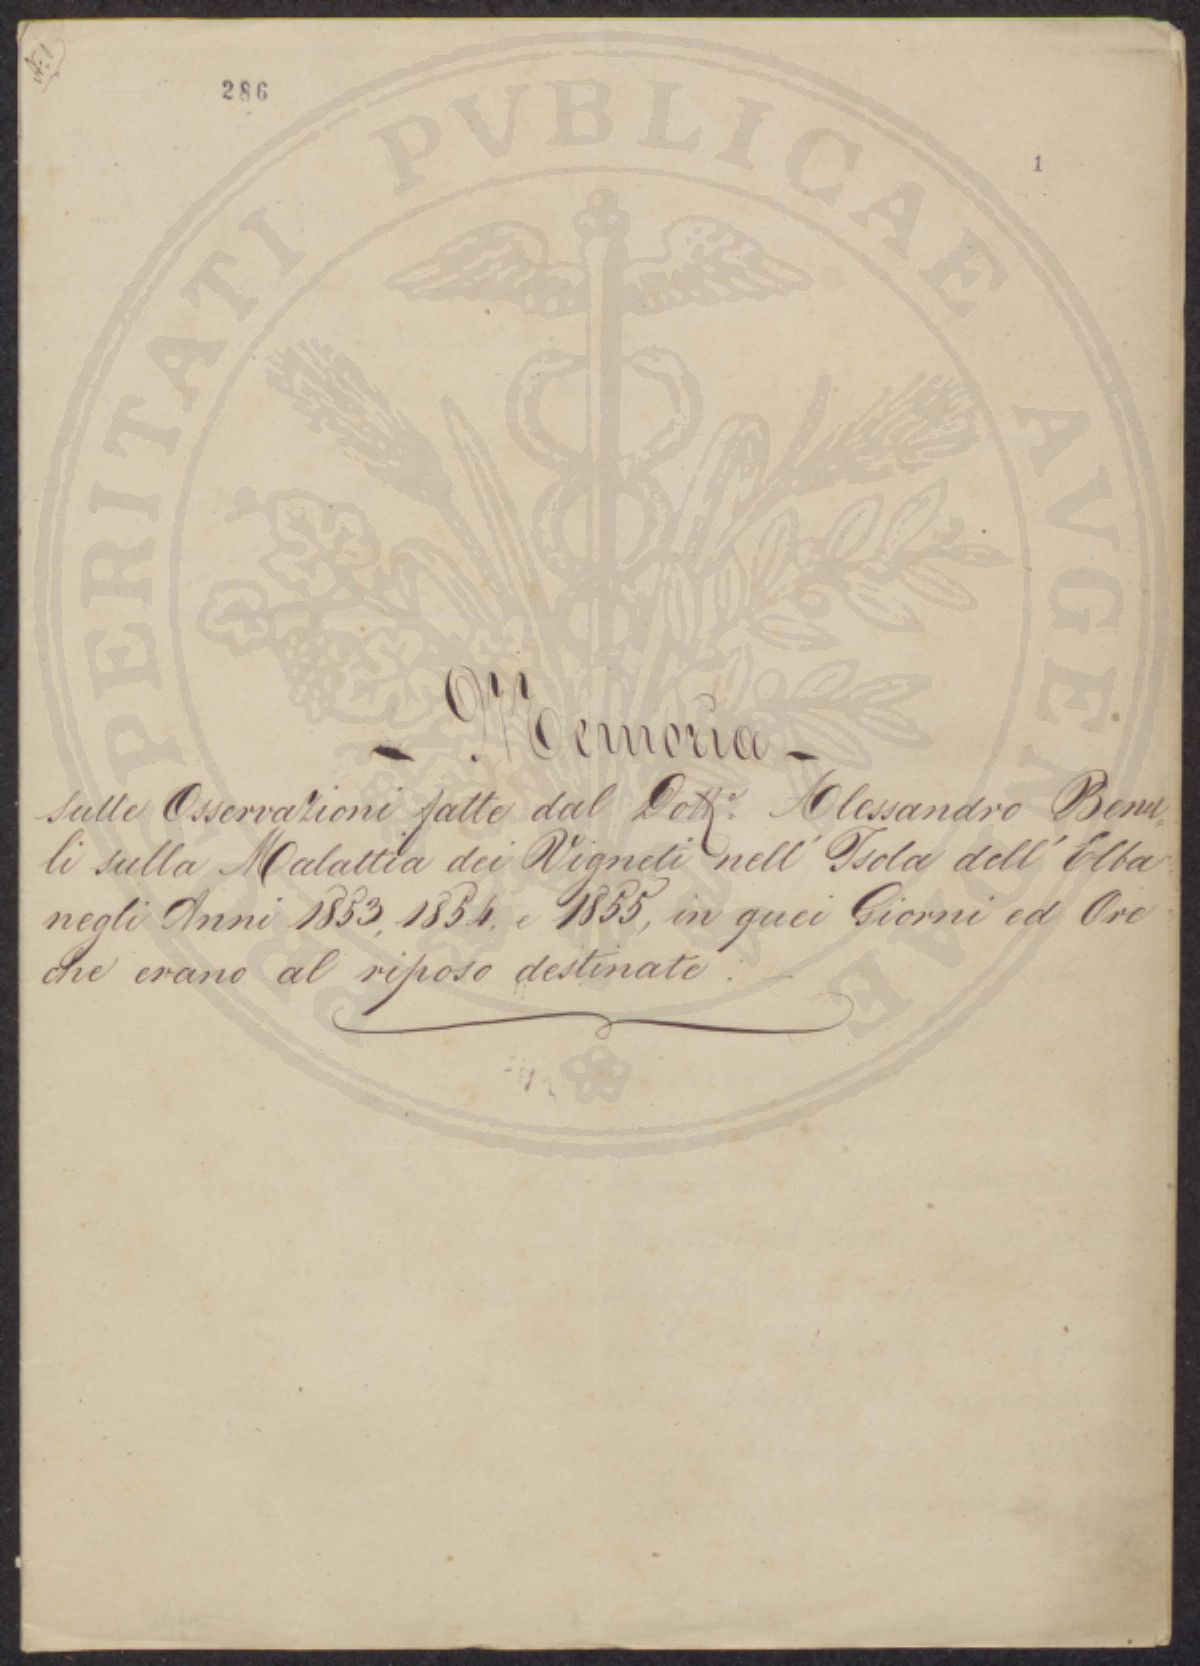 N. 1
286
1
- Memoria -
sulle Osservazioni fatte dal Dott.e Alessandro
li sulla Malattia dei Vigneti nell' Isola dell' Elba
negli Anni 1853, 1854, e 1855, in quei Giorni ed Ore
che erano al riposo destinate.
PROSPERITATI PVBLICAE AVGENDAE